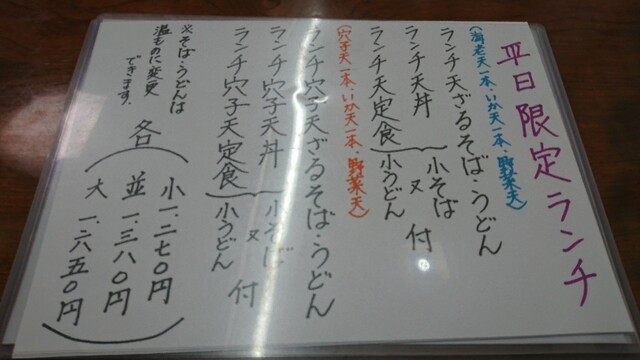 平日限定ランチ
(海老天一本・いか天一本・野菜天)
ランチ天ざるそば・うどん
ランチ天丼
ランチ天定食
小そば
又
小うどん
付
(穴子天一本・いか天一本・野菜天)
ランチ穴子天ざるそば・うどん
ランチ穴子天丼
ランチ穴子天定食
小そば
又
小うどん
付
※そば・うどんは
温ものに変更
できます.
各
小 一、二七〇円
並 一、三八〇円
大 一、六五〇円